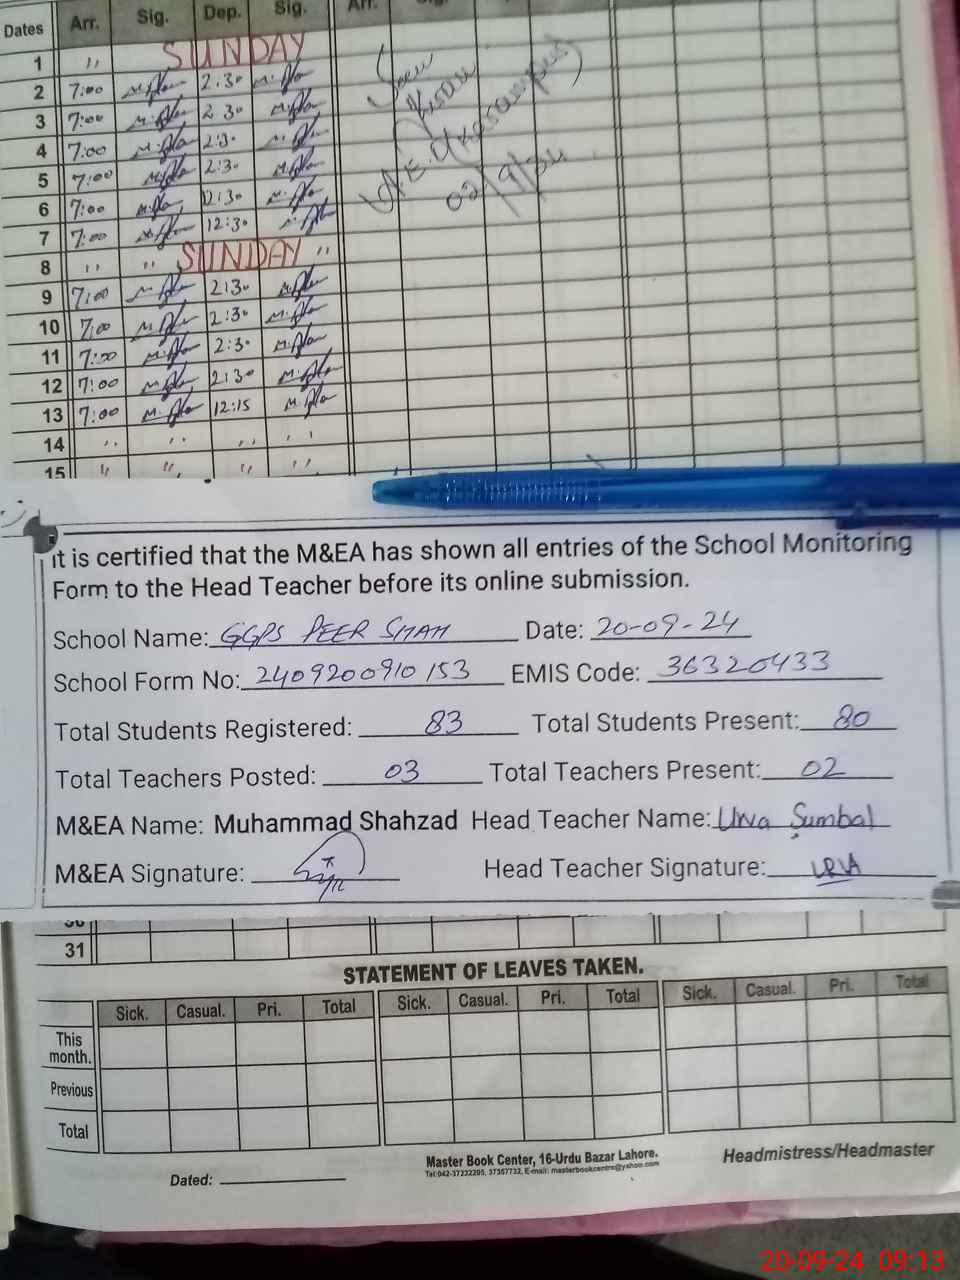 Dates Arr. Sig. Dep. Sig. Arr.
1 " SUNDAY
2 7:00 2:30
3 7:00 2 30
4 7:00 2:30
5 7:00 2:30
6 7:00 12:30
7 7:00 12:30
02/9/24
8 " " SUNDAY "
9 7:00 2:30
10 7:00 2:30
11 7:00 2:30
12 7:00 2:30
13 7:00 12:15
14 " " " "
15 " " " "
It is certified that the M&EA has shown all entries of the School Monitoring
Form to the Head Teacher before its online submission.
School Name: GGPS PEER SHAH Date: 20-09-24
School Form No: 2409200910153 EMIS Code: 36320433
Total Students Registered: 83 Total Students Present: 80
Total Teachers Posted: 03 Total Teachers Present: 02
M&EA Name: Muhammad Shahzad Head Teacher Name: Urwa Sumbal
M&EA Signature: Head Teacher Signature:
31
STATEMENT OF LEAVES TAKEN.
Sick. Casual. Pri. Total Sick. Casual. Pri. Total Sick. Casual. Pri. Total
This
month.
Previous
Total
Master Book Center, 16-Urdu Bazar Lahore. Headmistress/Headmaster
Dated:
20-09-24 09:13